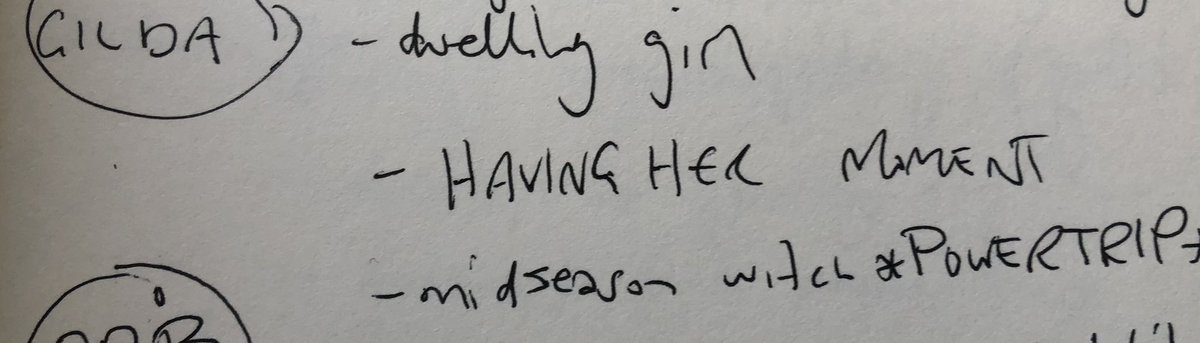 GILDA - dwelling girl
- HAVING HER MOMENT
- midseason witch *POWERTRIP*